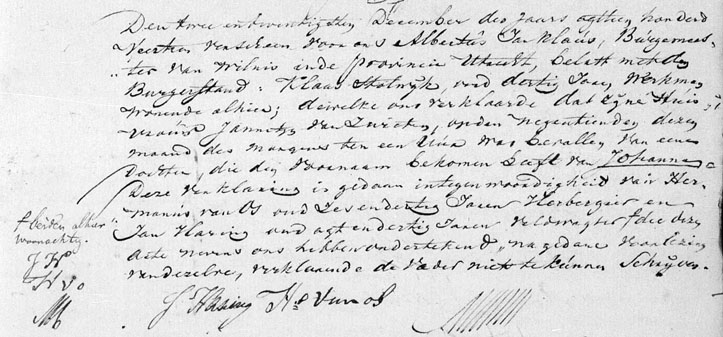 Den twee entwintigsten December des jaars agttien honderd
Veertien verscheen voor ons Albertus Jan Klaus, Burgemees-
ter van Wilnis inde provincie Utrecht, belast met den
Burgerstand: Klaas oud dertig Jaren, Werkman
wonende alhier; dewelke ons verklaarde dat zyne Huis-
vrouw Jannetje van Zwieten, op den negentienden dezer
maand des morgens ten een Uur was bevallen van eene
dochter, die den Voornaam bekomen heeft van Johanna
Deze verklaring is gedaan integenwoordigheid van Her-
manus van Os oud Zesendertig Jaren Herbergier en
Jan Haring oud agtendertig Jaren veldwagter die deze
acte nevens ons hebben ondertekend, na gedane voorlezing
van dezelve, verklaarende de vader niet te kunnen Schryven
beiden alhier
woonachtig.
J H
H v O
J Haring Hs van os